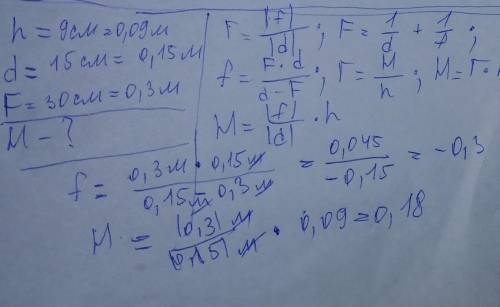 h = 9см = 0,09м
d = 15см = 0,15м
F = 30см = 0,3м
H - ?
Г = |f| / |d| ; F = 1/d + 1/f ;
f = F · d / d - F ; Г = H / h ; H = Г ·
H = |f| / |d| · h
f = 0,3м · 0,15м / 0,15м - 0,3м = 0,045 / -0,15 = -0,3
H = |0,3| м / |0,15| м · 0,09 = 0,18